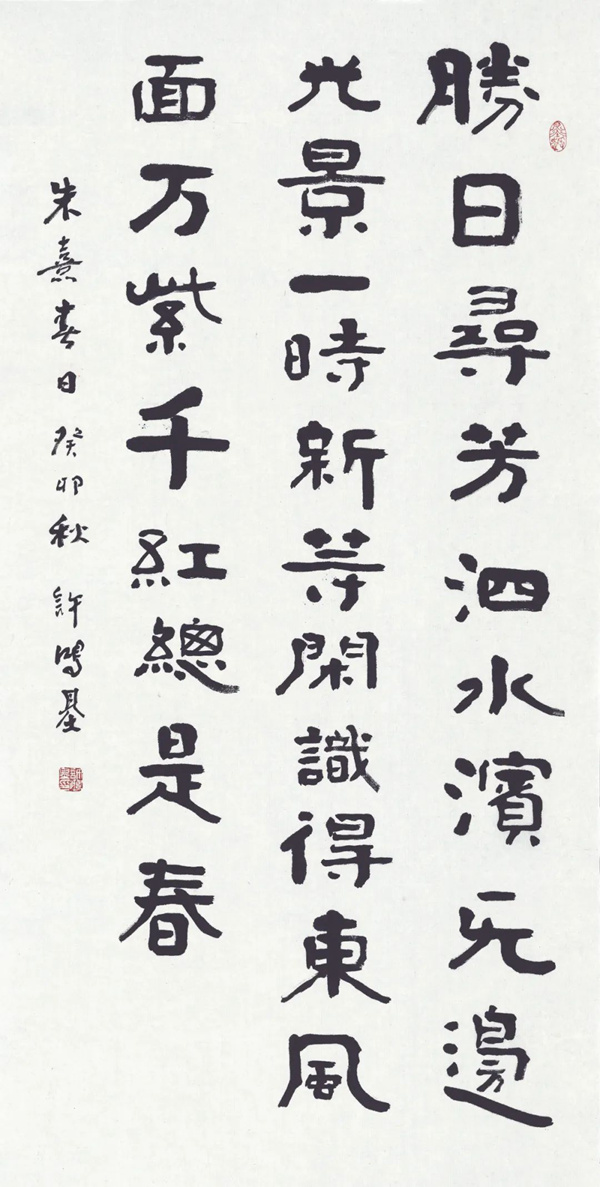 勝日尋芳泗水濱无邊
光景一時新等閑識得東風
面万紫千紅總是春
朱熹春日 癸卯秋 許鴻基